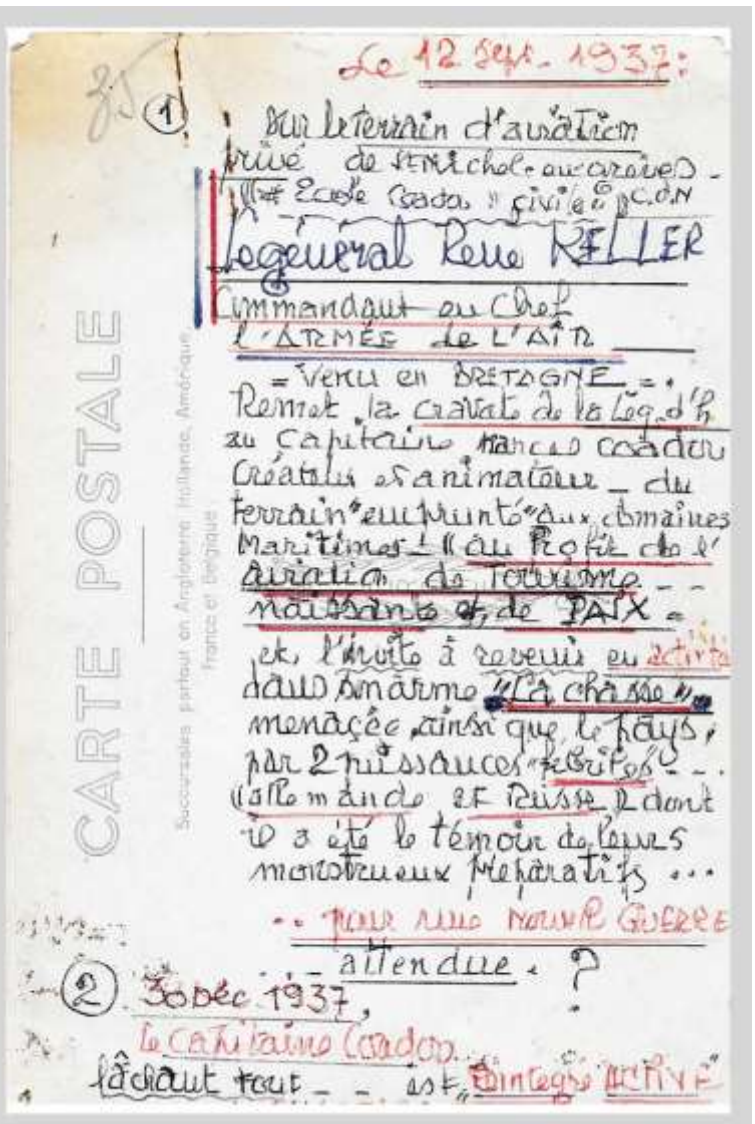 35
Le 12 Sept. 1937:
① sur le terrain d'aviation
privé de St Michel en grèves -
École Coadou civile C.O.N
Le général René KELLER
Commandant en Chef
l'ARMÉE de L'AIR
= Venu en BRETAGNE =.
Remet la cravate de la Lég. d'h
au Capitaine françois coadou
Créateur et animateur - du
terrain "emprunté" aux domaines
Maritimes - "au Profit de l'
aviation de Tourisme - -
naissante et, de PAIX =
et, l'invite à revenir en activité
dans son arme "La chasse"
menacée, ainsi que le pays,
par 2 puissances - ..
"allemande et Russe" dont
il a été le témoin de leurs
monstrueux préparatifs ...
.. pour une nouvelle GUERRE
attendue. ?
② 30 Déc 1937,
le capitaine Coadou...
lâchant tout - - est, réintégré ACTIVE
CARTE POSTALE
Succursales partout en Angleterre, Hollande, Amérique,
France et Belgique